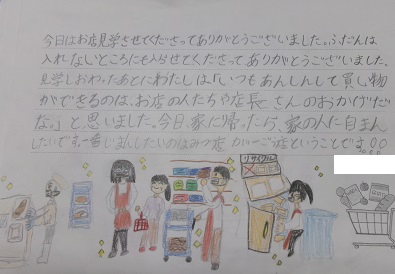 今日はお店見学させてくださってありがとうございました。ふだんは
入れないところにも入らせてくださってありがとうございました。
見学しおわったあとにわたしは「いつもあんしんして買い物
ができるのは、お店の人たちや店長さんのおかげだ
な。」と思いました。今日、家に帰ったら、家の人に自まん
したいです。一番じまんしたいのは
店ということです。
リサイクル